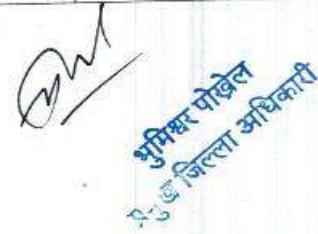 भुमिश्वर पोखरेल
प्रमुख जिल्ला अधिकारी